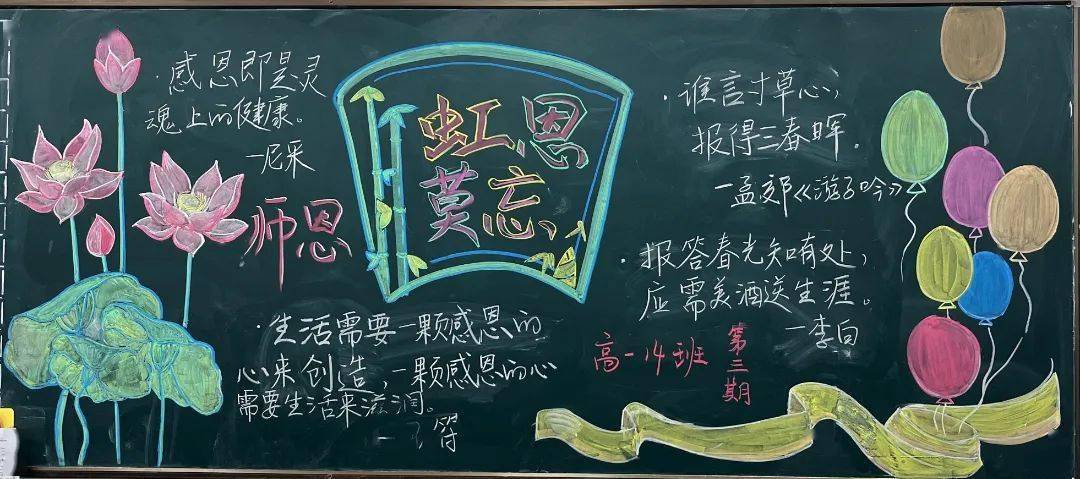 ·感恩即是灵
魂上的健康。
—尼采
师恩
虹恩
莫忘
·生活需要一颗感恩的
心来创造,一颗感恩的心
需要生活来滋润。
—符
·谁言寸草心,
报得三春晖.
—孟郊《游子吟》
·报答春光知有处,
应需美酒送生涯。
—李白
高一14班
第三期